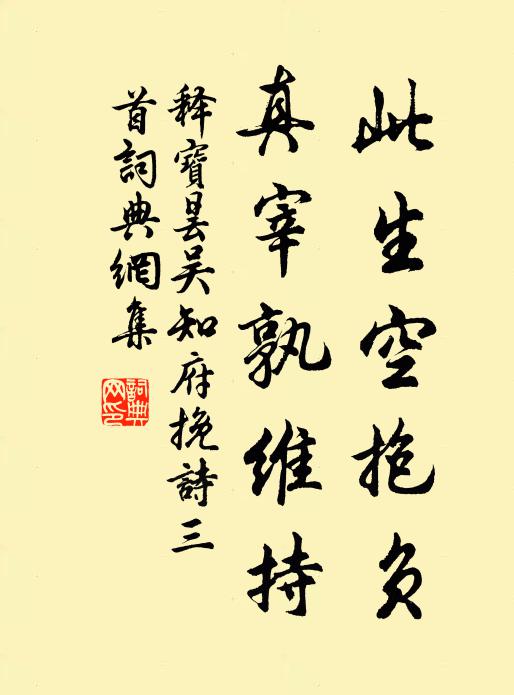 此生空抱负
真宰孰維持
释寶曇吴知府挽詩三
首詞典網集
詞典网印